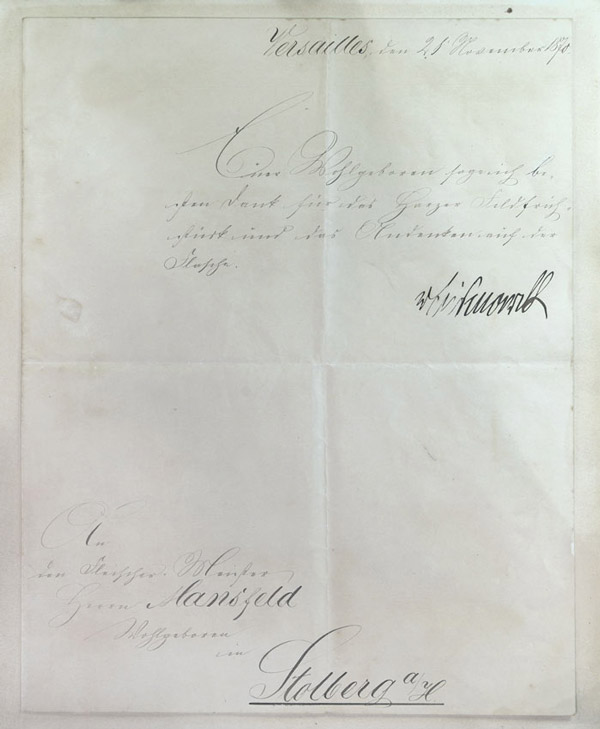 Versailles, den 21 November 1870.
Euer Wohlgeboren sage ich be-
sten Dank für das Harzer Feldfrüh-
stück und das Andenken auf der
Flasche.
v Bismarck
An
den Fleischer-Meister
Herrn Mansfeld
Wohlgeboren
in
Stolberg a/H.